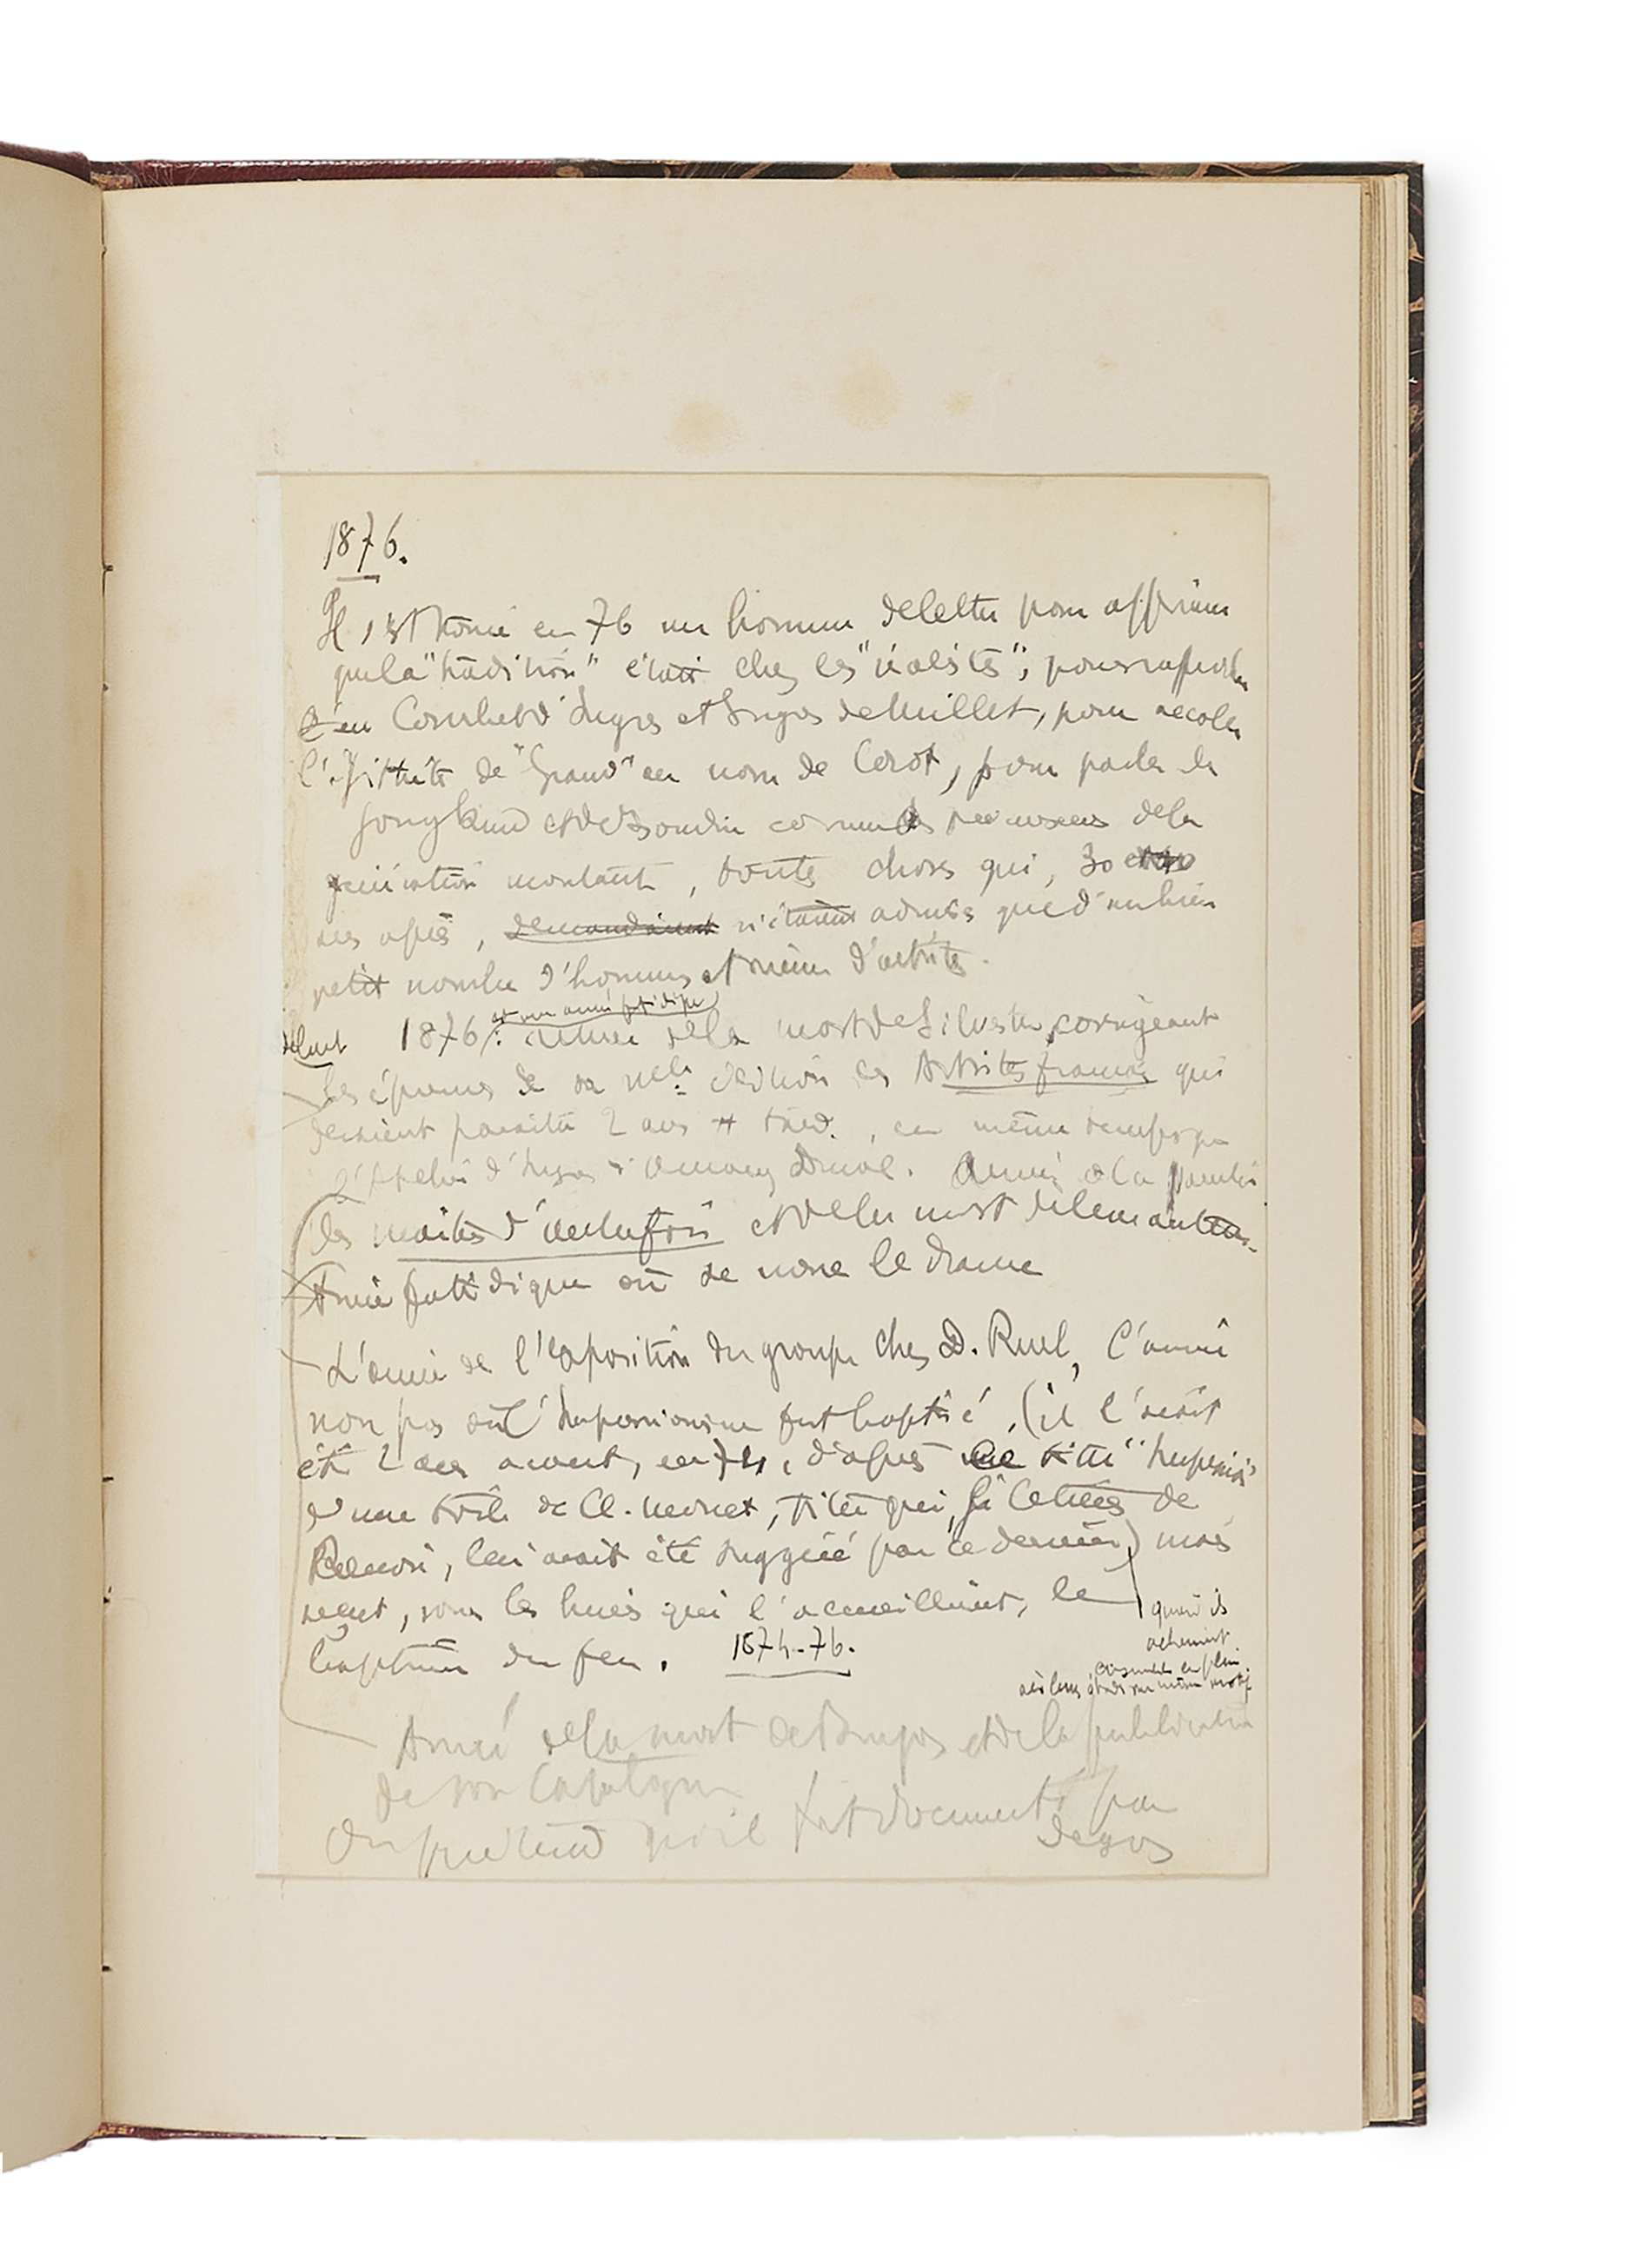 1876.
Il s'est trouvé en 76 un homme de lettre pour affirmer
que la "tradition" était chez les "réalistes", pour rapprocher
Courbet d'Ingres et Ingres de Millet, pour accoler
l'épithète de "Grand" au nom de Corot, pour parler de
Jongkind et de Boudin comme des précurseurs de la
génération montante, toutes choses qui, 30
ans après, demandaient n'étaient admises que d'un bien
petit nombre d'hommes et même d'artistes.
et une année fatidique
début 1876 : année de la mort de Silvestre, corrigeant
les épreuves de sa nelle édition des Artistes français qui
devaient paraître 2 ans + tard, en même temps que
l'Atelier d'Ingres d'Amaury Duval. Année de la parution
des Maîtres d'autrefois et de la mort de leur auteur.
Année fatidique où se noue le drame
L'année de l'exposition du groupe chez D. Ruel, l'année
non pas où l'Impressionnisme fut baptisé, (il l'avait
été 2 ans avant, en 74, d'après le titre "Impression"
d'une toile de Cl. Monet, titre qui,
Renoir, lui avait été suggéré par ce dernier) mais
reçut, sous les huées qui l'accueillirent, le
baptême du feu. 1874-76.
quand ils
achevaient
ensemble en plein
leurs études sur même motif
Année de la mort de et de la publication
de son Catalogue
On prétend qu'il fut documenté par
Degas